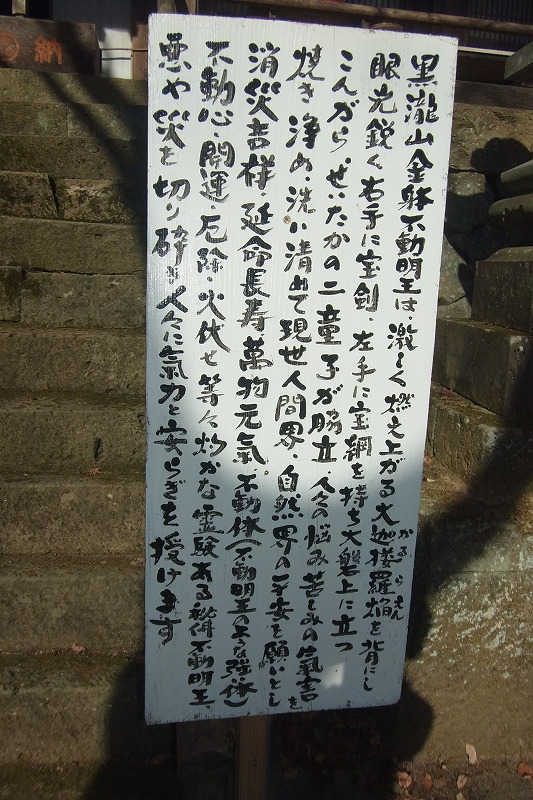 黒瀧山金躰不動明王は激しく燃え上がる大迦楼羅焔を背にし
かるらえん
眼光鋭く右手に宝剣、左手に宝網を持ち大盤上に立つ
こんがら、ぜいたかの二童子が脇立、人々の悩み苦しみの氣害を
焼き浄め、洗い清めて現世人間界、自然界の平安を願いとし
消災吉祥 延命長寿 萬物元氣。不動体(不動明王の様な強い体)
不動心、開運 厄除、火伏せ等々灼かな霊験ある秘佛不動明王、
悪や災を切り砕き人々に氣力と安らぎを授けます
納